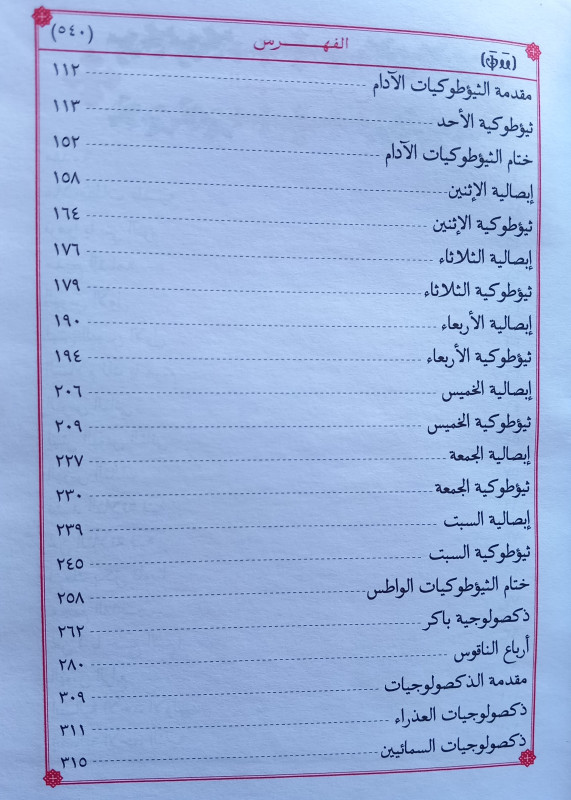 (ⲫ̅ⲙ̅) الفهرس (٥٤٠)
مقدمة الثيؤطوكيات الآدام ١١٢
ثيؤطوكية الأحد ١١٣
ختام الثيؤطوكيات الآدام ١٥٢
إبصالية الإثنين ١٥٨
ثيؤطوكية الإثنين ١٦٤
إبصالية الثلاثاء ١٧٦
ثيؤطوكية الثلاثاء ١٧٩
إبصالية الأربعاء ١٩٠
ثيؤطوكية الأربعاء ١٩٤
إبصالية الخميس ٢٠٦
ثيؤطوكية الخميس ٢٠٩
إبصالية الجمعة ٢٢٧
ثيؤطوكية الجمعة ٢٣٠
إبصالية السبت ٢٣٩
ثيؤطوكية السبت ٢٤٥
ختام الثيؤطوكيات الواطس ٢٥٨
ذكصولوجية باكر ٢٦٢
أرباع الناقوس ٢٨٠
مقدمة الذكصولوجيات ٣٠٩
ذكصولوجيات العذراء ٣١١
ذكصولوجيات السمائيين ٣١٥